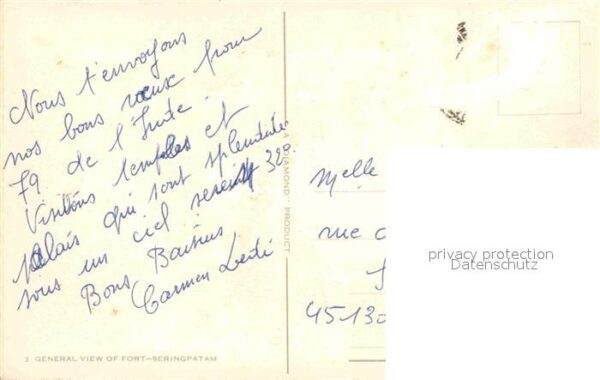 Nous t'envoyons
nos bons vœux pour
79 de l'Inde.
Visitons temples et
palais qui sont splendides
sous un ciel serein 32°.
Bons Baisers
Carmen
A "DIAMOND" PRODUCT
Melle
rue
45130
privacy protection
Datenschutz
2 GENERAL VIEW OF FORT—SERINGPATAM